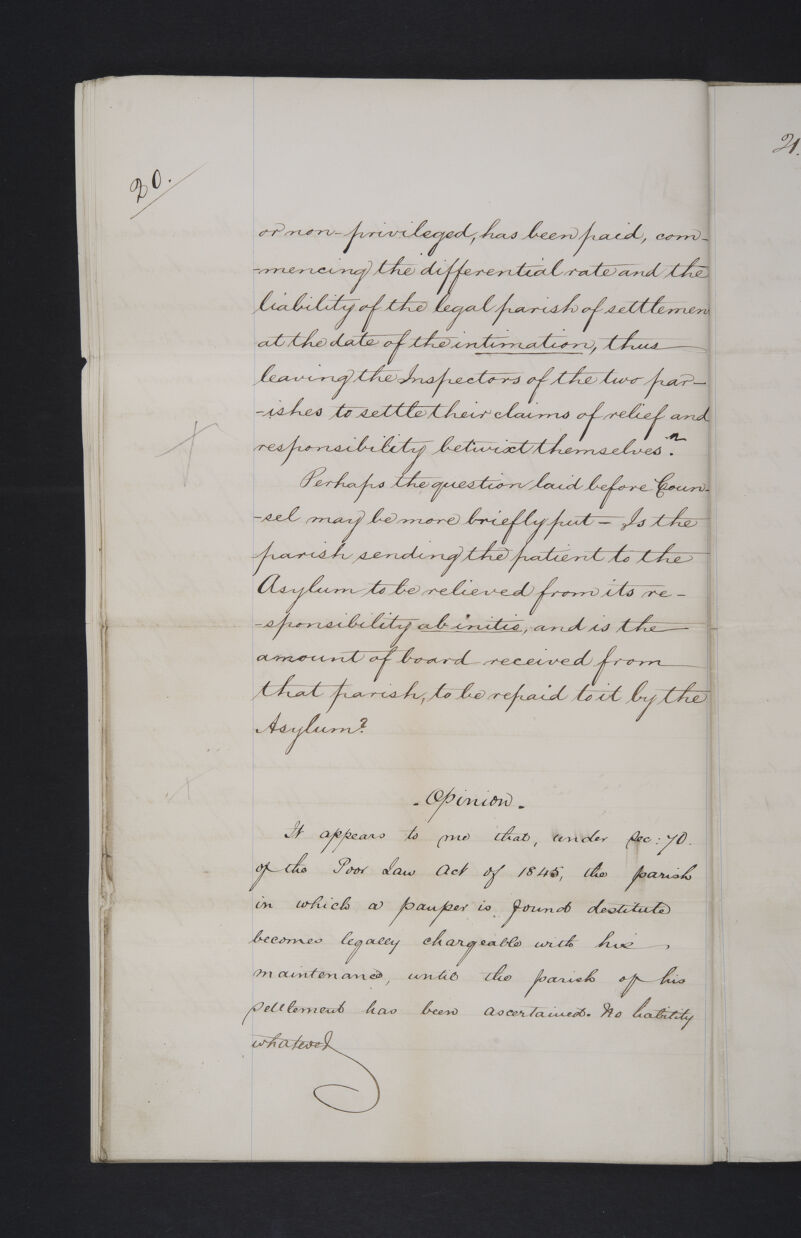 20.
21.
or non-privileged, has been paid, com-
-mencing the differential rate and the
liability of the legal parish of settlemen
at the date of the intimation, thus
leaving the Inspectors of the two par-
-ishes to settle their claims of relief and
responsibility betwixt themselves?
Perhaps the question laid before Coun-
-sel may be more briefly put - Is the
parish sending the patient to the
Asylum to be relieved from its re-
-sponsibility ab initio, and is the
amount of board received from
that parish, to be repaid to it by the
Asylum?
- Opinion -
It appears to me that, under Sec: 70.
of the Poor Law Act of 1845, the parish
in which a pauper is found destitute
becomes legally chargeable with his
maintenance, until the parish of his
settlement has been ascertained. No liability
whatever